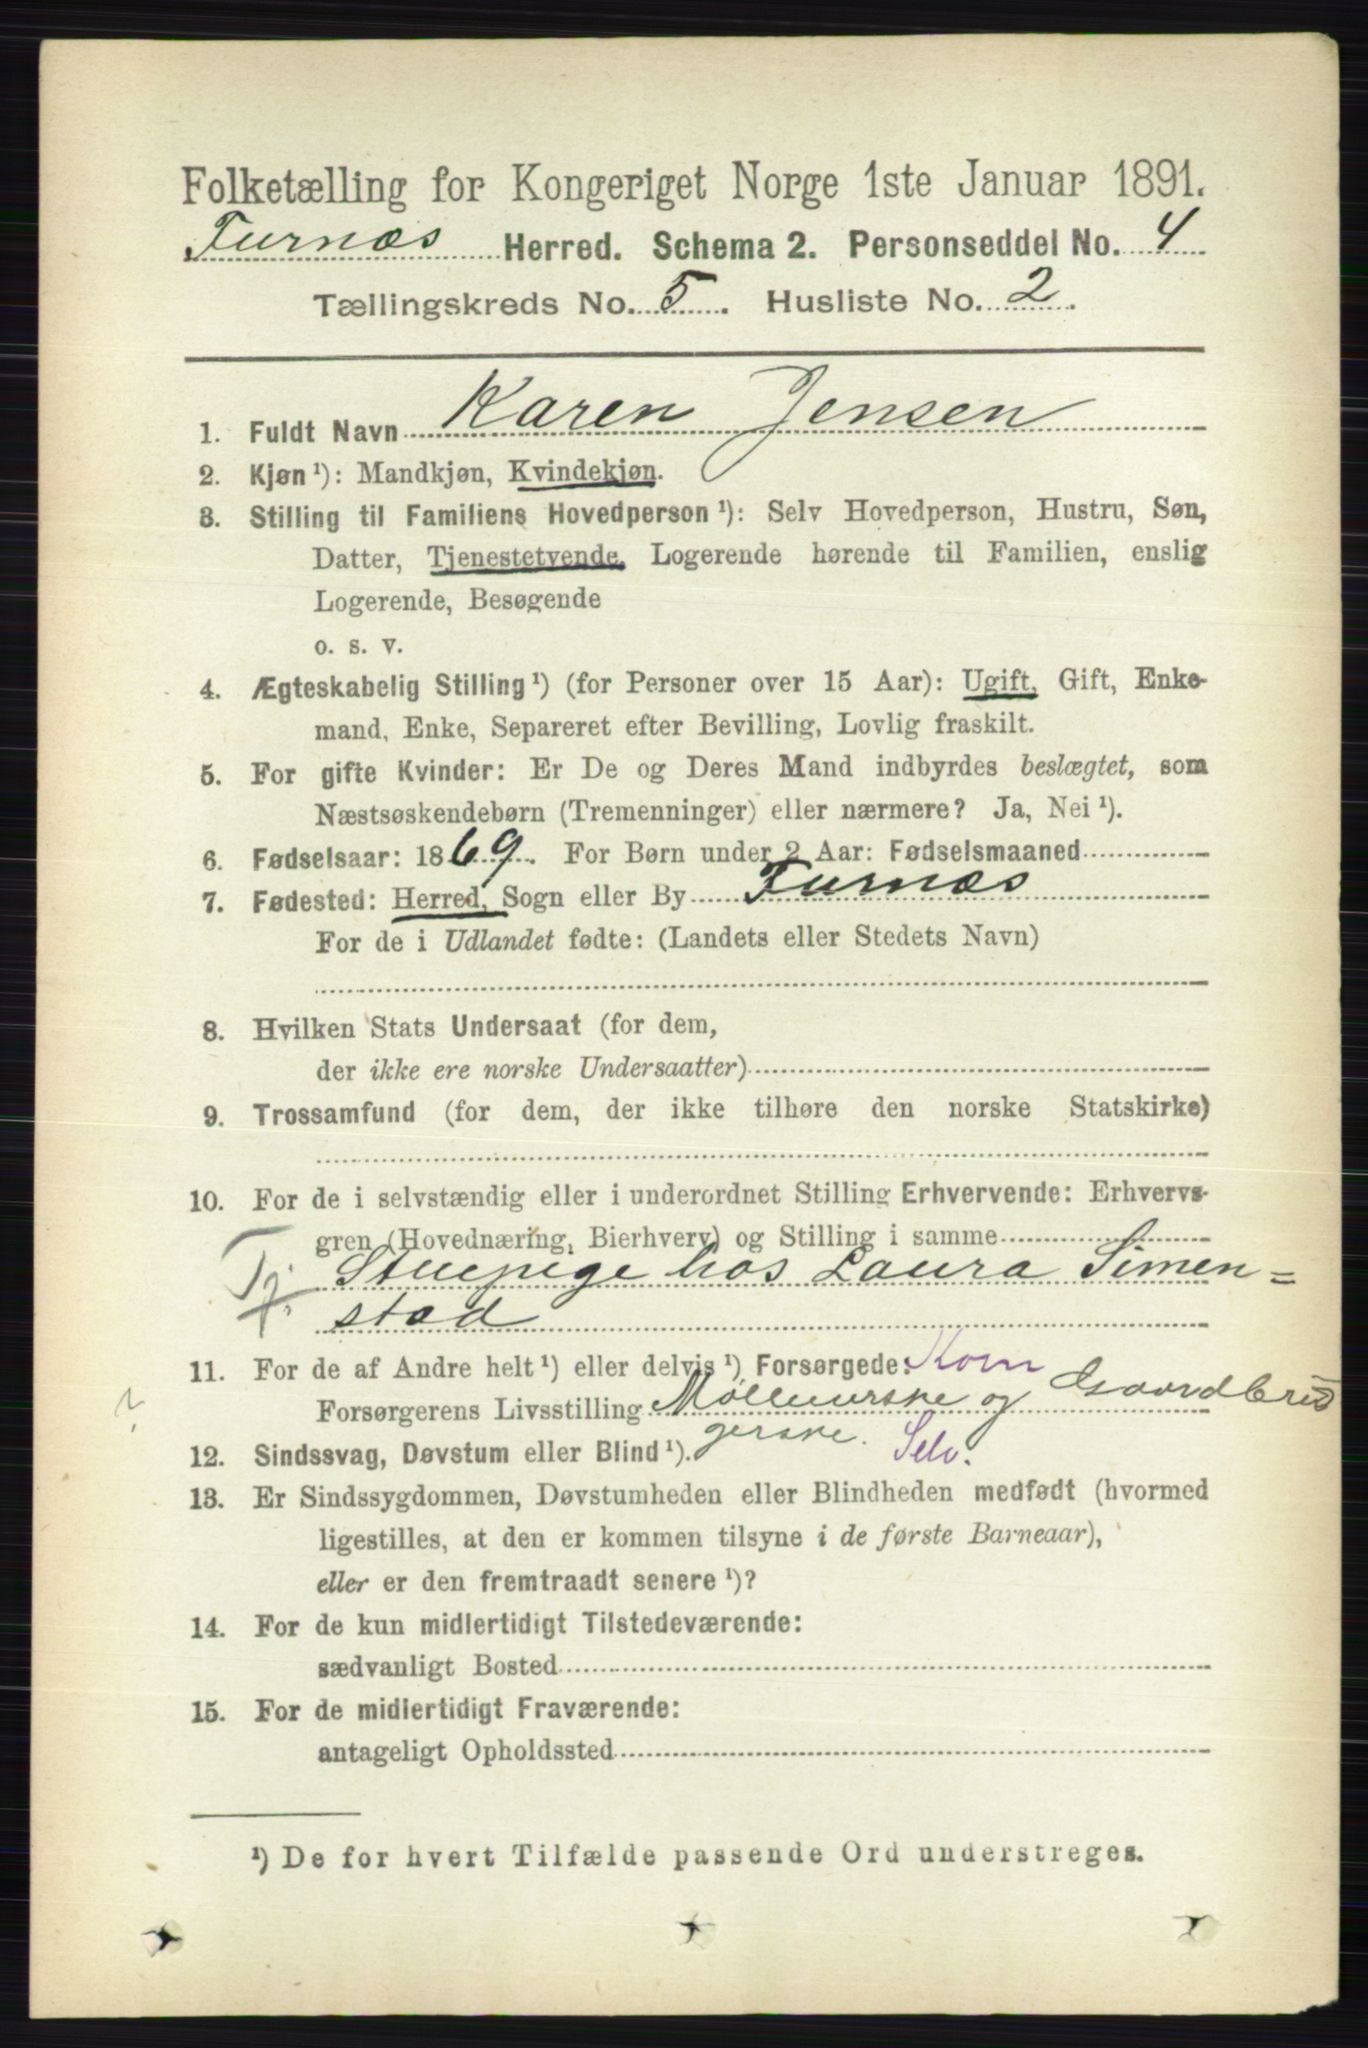 Folketælling for Kongeriget Norge 1ste Januar 1891.
Furnæs Herred. Schema 2. Personseddel No. 4
Tællingskreds No. 5. Husliste No. 2.
1. Fuldt Navn Karen Jensen
2. Kjøn¹): Mandkjøn, Kvindekjøn.
3. Stilling til Familiens Hovedperson¹): Selv Hovedperson, Hustru, Søn,
Datter, Tjenestetyende, Logerende hørende til Familien, enslig
Logerende, Besøgende
o. s. v.
4. Ægteskabelig Stilling¹) (for Personer over 15 Aar): Ugift, Gift, Enke-
mand, Enke, Separeret efter Bevilling, Lovlig fraskilt.
5. For gifte Kvinder: Er De og Deres Mand indbyrdes beslægtet, som
Næstsøskendebørn (Tremenninger) eller nærmere? Ja, Nei¹).
6. Fødselsaar: 1869. For Børn under 2 Aar: Fødselsmaaned
7. Fødested: Herred, Sogn eller By Furnæs
For de i Udlandet fødte: (Landets eller Stedets Navn)
8. Hvilken Stats Undersaat (for dem,
der ikke ere norske Undersaatter)
9. Trossamfund (for dem, der ikke tilhøre den norske Statskirke)
10. For de i selvstændig eller i underordnet Stilling Erhvervende: Erhvervs-
gren (Hovednæring, Bierhverv) og Stilling i samme
Tj. Stuepige hos Laura Simen=
stad
11. For de af Andre helt¹) eller delvis¹) Forsørgede: Korn
Forsørgerens Livsstilling Mølleierske og Gaardbru
gerske. Selv.
12. Sindssvag, Døvstum eller Blind¹).
13. Er Sindssygdommen, Døvstumheden eller Blindheden medfødt (hvormed
ligestilles, at den er kommen tilsyne i de første Barneaar),
eller er den fremtraadt senere¹)?
14. For de kun midlertidigt Tilstedeværende:
sædvanligt Bosted
15. For de midlertidigt Fraværende:
antageligt Opholdssted
¹) De for hvert Tilfælde passende Ord understreges.